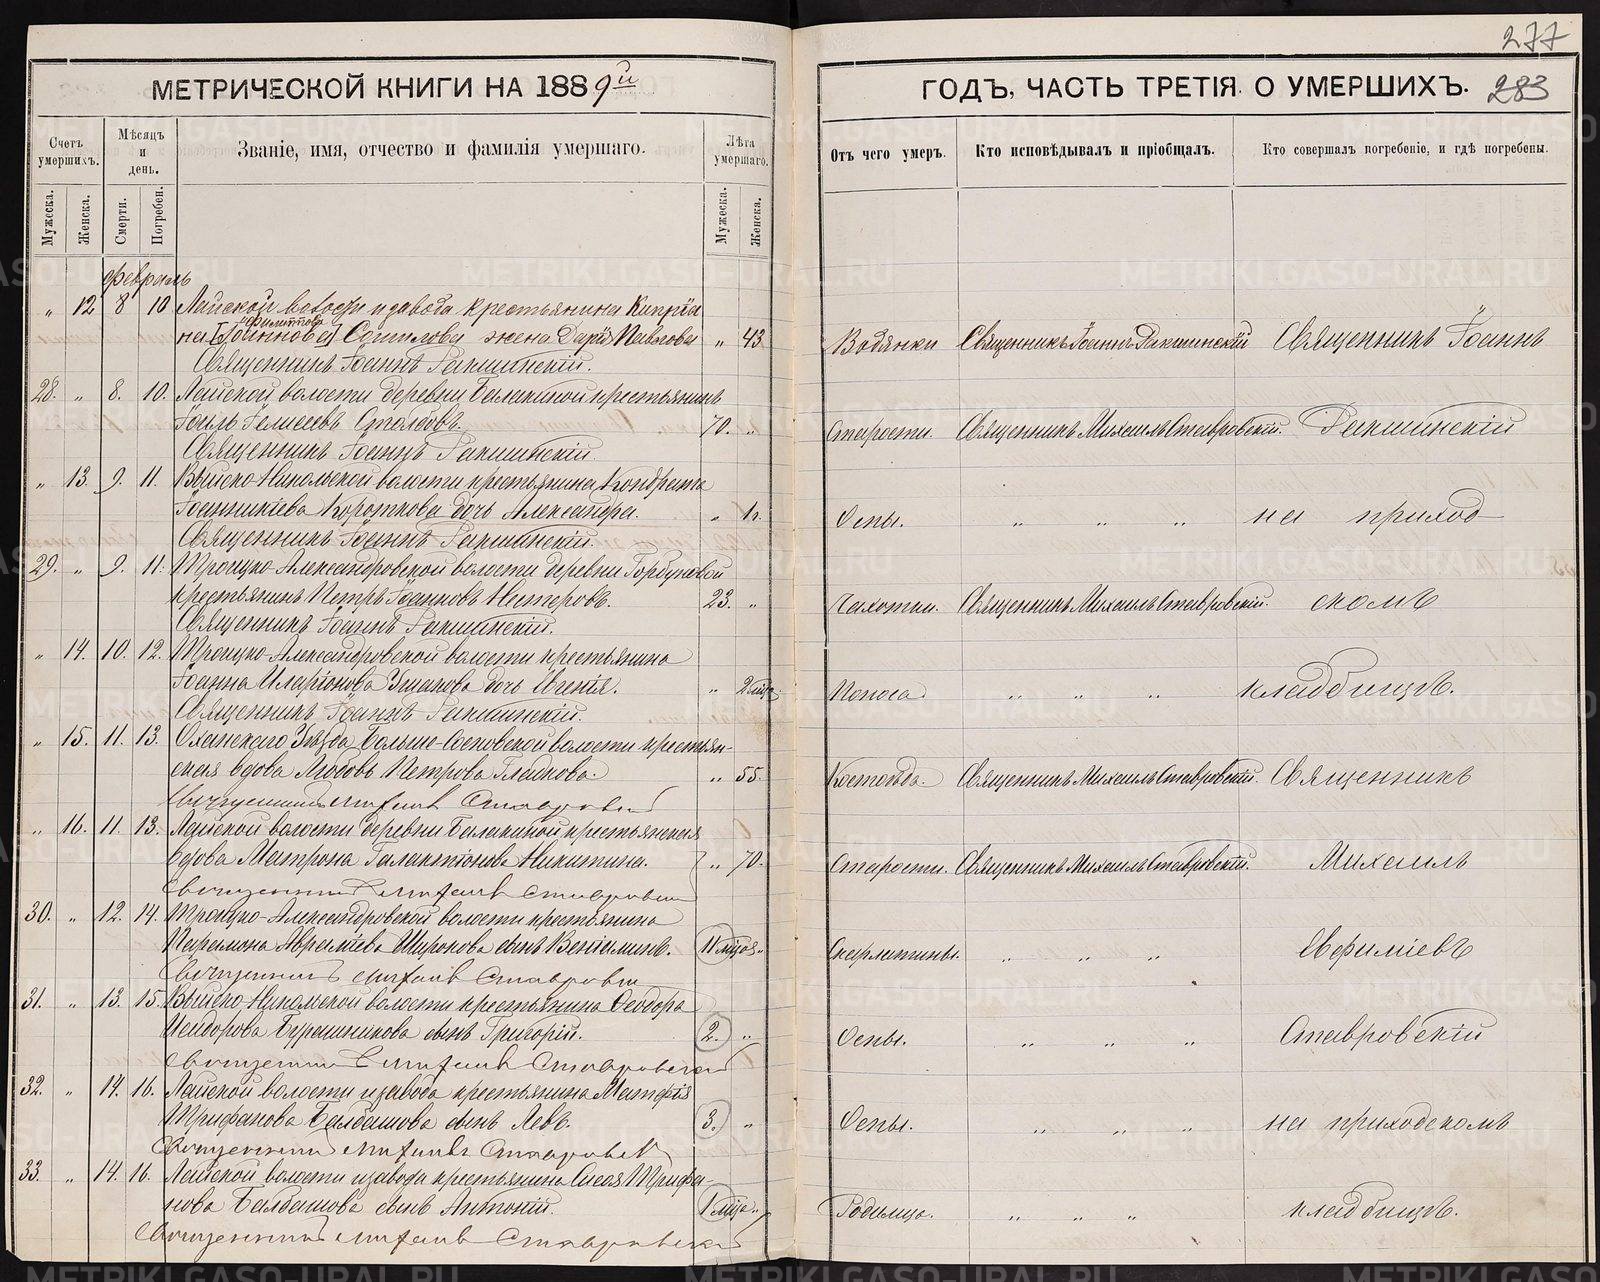 277
МЕТРИЧЕСКОЙ КНИГИ НА 1889й
ГОДЪ, ЧАСТЬ ТРЕТІЯ О УМЕРШИХЪ.
283
Счетъ умершихъ.
Мѣсяцъ и день.
Званіе, имя, отчество и фамилія умершаго.
Лѣта умершаго.
Мужеска.
Женска.
Смерти.
Погребен.
Мужеска.
Женска.
Отъ чего умеръ.
Кто исповѣдывалъ и пріобщалъ.
Кто совершалъ погребеніе, и гдѣ погребены.
Февраль
„ 12 8 10 Лайской волости и завода крестьянина Кипрiа
Филиппова
на [Іоаннова] Созинова жена Дарія Павлова „ 43 Водянки Священникъ Іоаннъ Ракшинскій Священникъ Іоаннъ
Священникъ Іоаннъ Ракшинскій.
28. „ 8. 10. Лайской волости деревни Балакиной крестьянинъ
Іоиль Елисеевъ Столбовъ. 70. „ Старости. Священникъ Михаилъ Ставровскій. Ракшинскій
Священникъ Іоаннъ Ракшинскій.
„ 13. 9. 11. Выйско-Никольской волости крестьянина Кондрата
Іоанникіева Короткова дочь Александра. „ 1 г. Оспы. „ „ „ на приход
Священникъ Іоаннъ Ракшинскій.
29. „ 9. 11. Троицко-Александровской волости деревни Горбуновой
крестьянинъ Петръ Іоанновъ Нестеровъ. 23. „ Чахотки. Священникъ Михаилъ Ставровскій. скомъ
Священникъ Іоаннъ Ракшинскій.
„ 14. 10. 12. Троицко-Александровской волости крестьянина
Іоанна Иларіонова Ушакова дочь Евгенія. „ 2 мѣс. Поноса „ „ „ кладбищѣ.
Священникъ Іоаннъ Ракшинскій.
„ 15. 11. 13. Оханскаго Уѣзда Больше-Сосновской волости крестьян-
ская вдова Любовь Петрова Глашкова. „ 55. Костоѣда. Священникъ Михаилъ Ставровскій. Священникъ
Священникъ Михаилъ Ставровскій
„ 16. 11. 13. Лайской волости деревни Балакиной крестьянская
вдова Матрона Галактіонова Никитина. „ 70. Старости. Священникъ Михаилъ Ставровскій. Михаилъ
Священникъ Михаилъ Ставровскій
30. „ 12. 14. Троицко-Александровской волости крестьянина
Парамона Авраміева Широкова сынъ Веніаминъ. 11 мѣся. „ Скарлатины. „ „ „ Евфиміевъ
Священникъ Михаилъ Ставровскій
31. „ 13. 15. Выйско-Никольской волости крестьянина Ѳеодора
Исидорова Бурашникова сынъ Григорій. 2. „ Оспы. „ „ „ Ставровскій
Священникъ Михаилъ Ставровскій
32. „ 14. 16. Лайской волости и завода крестьянина Матѳія
Трифанова Балбашова сынъ Левъ. 3. „ Оспы. „ „ „ на приходскомъ
Священникъ Михаилъ Ставровскій
33. „ 14. 16. Лайской волости и завода крестьянина Сысоя Трифа-
нова Балбашова сынъ Антоній. 1 мѣся. „ Родимца. „ „ „ кладбищѣ.
Священникъ Михаилъ Ставровскій
METRIKI.GASO-URAL.RU